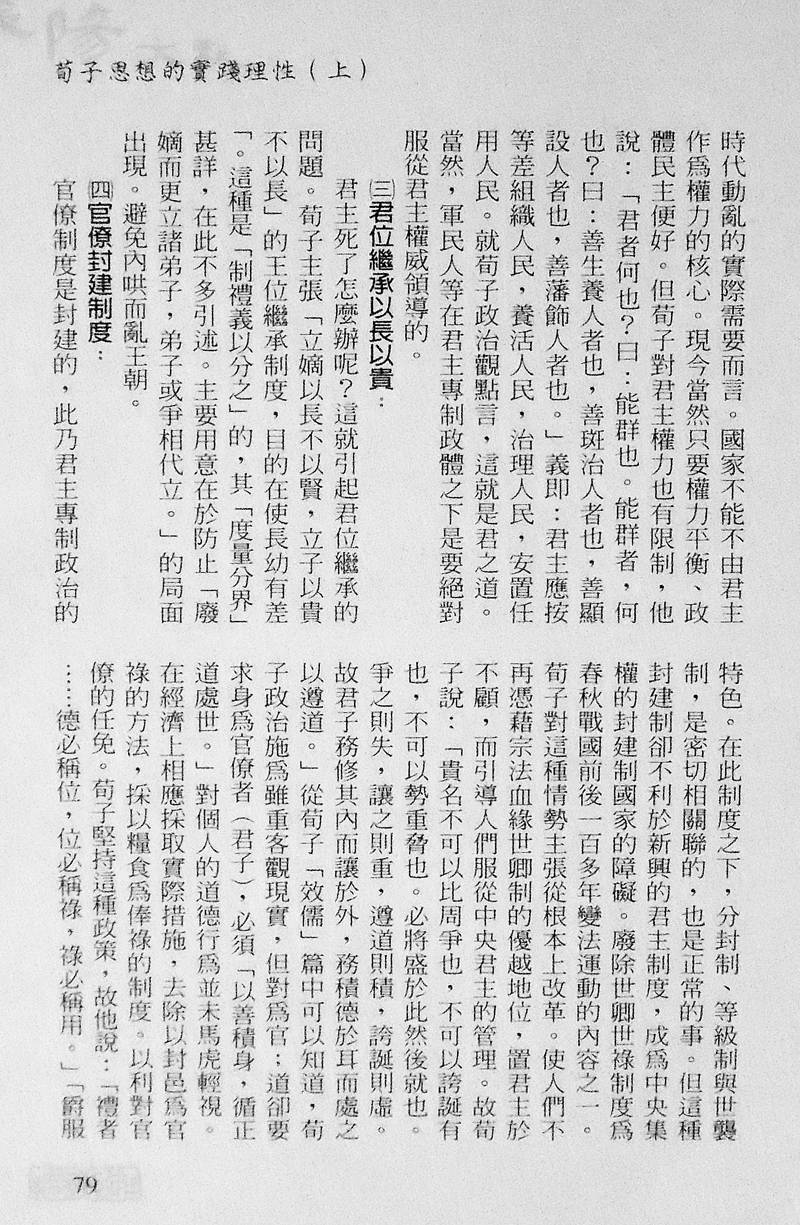 荀子思想的實踐理性（上）
時代動亂的實際需要而言。國家不能不由君主
作爲權力的核心。現今當然只要權力平衡、政
體民主便好。但荀子對君主權力也有限制，他
說：「君者何也？曰：能群也。能群者，何
也？曰：善生養人者也，善斑治人者也，善顯
設人者也，善藩飾人者也。」義即：君主應按
等差組織人民，養活人民，治理人民，安置任
用人民。就荀子政治觀點言，這就是君之道。
當然，軍民人等在君主專制政體之下是要絕對
服從君主權威領導的。
㈢君位繼承以長以貴：
君主死了怎麼辦呢？這就引起君位繼承的
問題。荀子主張「立嫡以長不以賢，立子以貴
不以長」的王位繼承制度，目的在使長幼有差
「。這種是「制禮義以分之」的，其「度量分界」
甚詳，在此不多引述。主要用意在於防止「廢
嫡而更立諸弟子，弟子或爭相代立。」的局面
出現。避免內哄而亂王朝。
㈣官僚封建制度：
官僚制度是封建的，此乃君主專制政治的
特色。在此制度之下，分封制、等級制與世襲
制，是密切相關聯的，也是正常的事。但這種
封建制卻不利於新興的君主制度，成爲中央集
權的封建制國家的障礙。廢除世卿世祿制度爲
春秋戰國前後一百多年變法運動的內容之一。
荀子對這種情勢主張從根本上改革。使人們不
再憑藉宗法血緣世卿制的優越地位，置君主於
不顧，而引導人們服從中央君主的管理。故荀
子說：「貴名不可以比周爭也，不可以誇誕有
也，不可以勢重脅也。必將盛於此然後就也。
爭之則失，讓之則重，遵道則積，誇誕則虛。
故君子務修其內而讓於外，務積德於耳而處之
以遵道。」從荀子「效儒」篇中可以知道，荀
子政治施爲雖重客觀現實，但對爲官；道卻要
求身爲官僚者（君子），必須「以善積身，循正
道處世。」對個人的道德行爲並未馬虎輕視。
在經濟上相應採取實際措施，去除以封邑爲官
祿的方法，採以糧食爲俸祿的制度。以利對官
僚的任免。荀子堅持這種政策，故他說：「禮者
……德必稱位，位必稱祿，祿必稱用。」「爵服
79